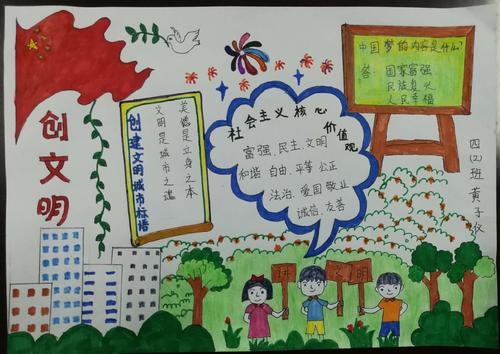 创文明
创建文明城市标语
文明是城市之魂
美德是立身之本
社会主义核心价值观
富强、民主、文明
和谐、自由、平等、公正
法治、爱国、敬业
诚信、友善
中国梦的内容是什么?
答: 国家富强
民族复兴
人民幸福
四(2)班 黄子仪
讲文明